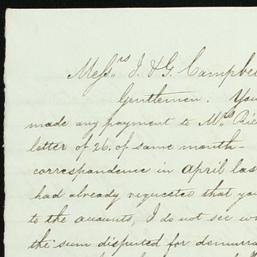 Messrs. J. & G. Campbe
Gentlemen. You
made any payment to Mr.
letter of 26. of same month-
correspondence in April las
had already requested that yo
to the accounts, I do not see w
the sum disputed for demurra